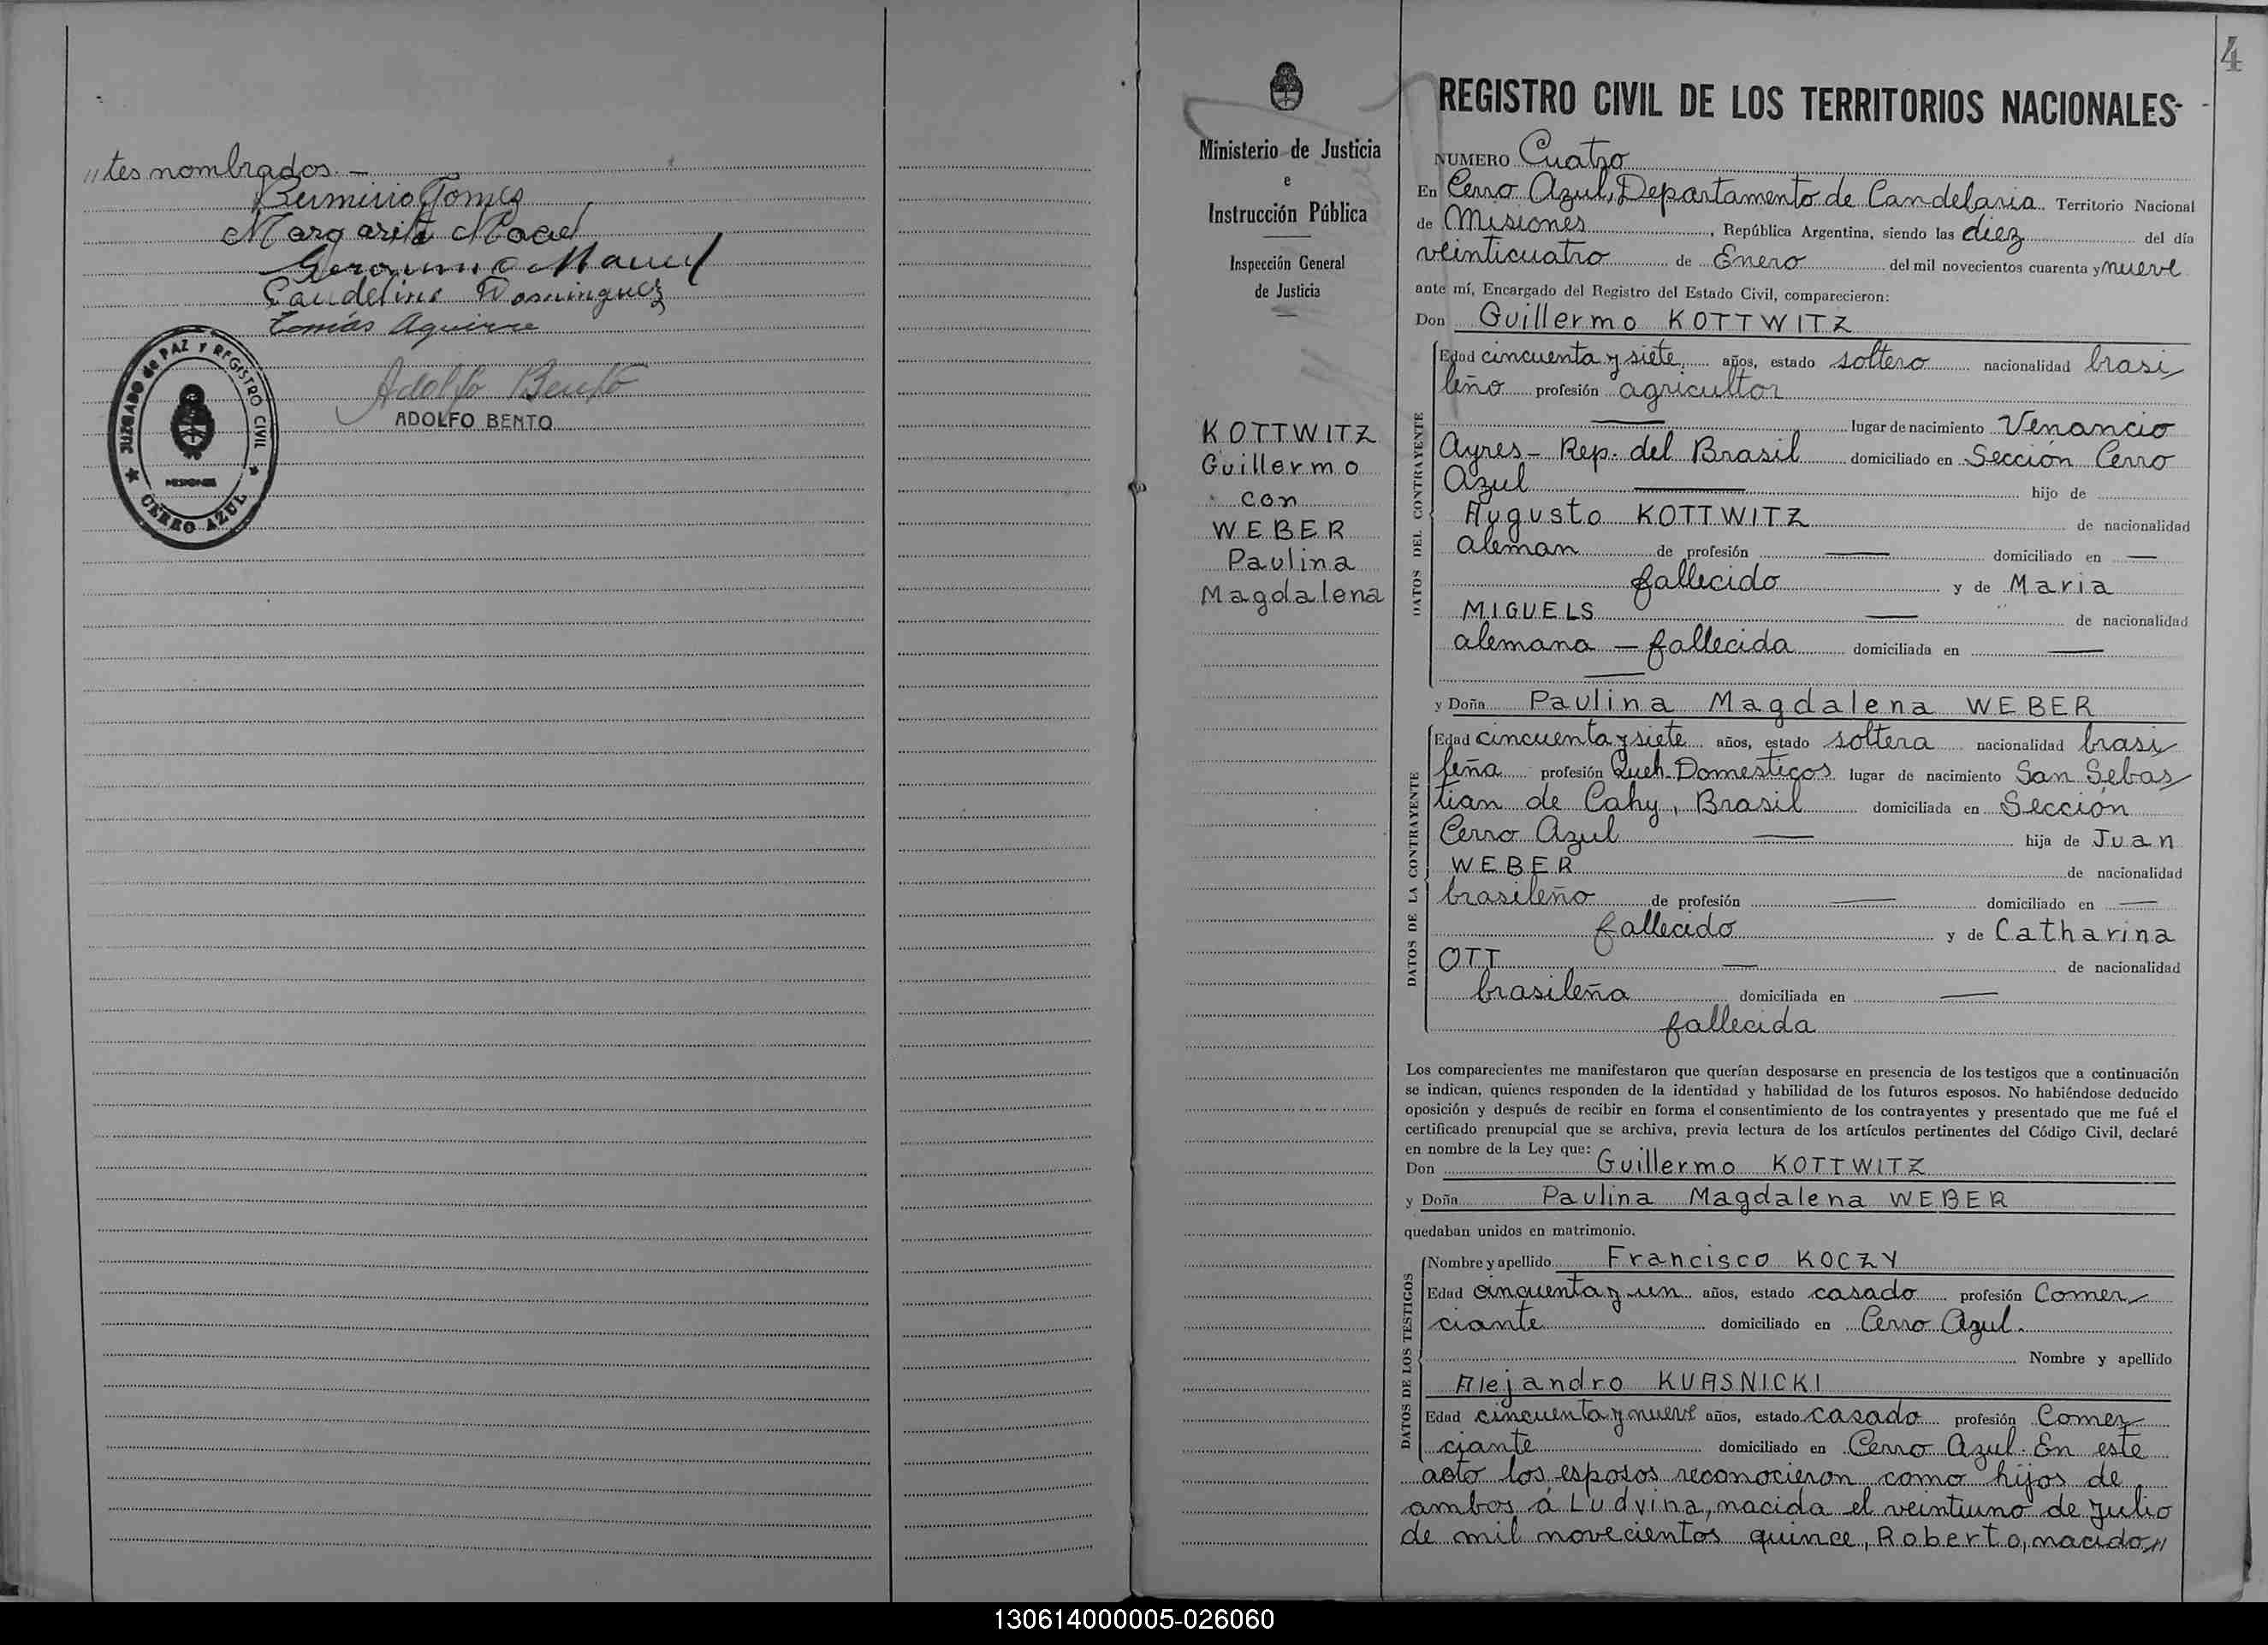 4
//tes nombrados. —
Margarita
Candelino Dominguez
Tomás Aguirre
Adolfo Bento
ADOLFO BENTO
JUZGADO de PAZ Y REGISTRO CIVIL
MISIONES
CERRO AZUL
Ministerio de Justicia
e
Instrucción Pública
Inspección General
de Justicia
KOTTWITZ
Guillermo
con
WEBER
Paulina
Magdalena
REGISTRO CIVIL DE LOS TERRITORIOS NACIONALES
NUMERO Cuatro
En Cerro Azul, Departamento de Candelaria Territorio Nacional
de Misiones, República Argentina, siendo las diez del día
veinticuatro de Enero del mil novecientos cuarenta y nueve
ante mí, Encargado del Registro del Estado Civil, comparecieron:
Don Guillermo KOTTWITZ
DATOS DEL CONTRAYENTE
Edad cincuenta y siete años, estado soltero nacionalidad brasi
leño profesión agricultor
— lugar de nacimiento Venancio
Ayres - Rep. del Brasil domiciliado en Sección Cerro
Azul — hijo de
Augusto KOTTWITZ de nacionalidad
aleman de profesión — domiciliado en —
fallecido y de Maria
MIGUELS — de nacionalidad
alemana — fallecida domiciliada en —
—
y Doña Paulina Magdalena WEBER
DATOS DE LA CONTRAYENTE
Edad cincuenta y siete años, estado soltera nacionalidad brasi
leña profesión Queh. Domesticos lugar de nacimiento San Sebas
tian de Cahy, Brasil domiciliada en Sección
Cerro Azul — hija de Juan
WEBER de nacionalidad
brasileño de profesión — domiciliado en —
fallecido y de Catharina
OTT — de nacionalidad
brasileña domiciliada en —
fallecida
Los comparecientes me manifestaron que querían desposarse en presencia de los testigos que a continuación
se indican, quienes responden de la identidad y habilidad de los futuros esposos. No habiéndose deducido
oposición y después de recibir en forma el consentimiento de los contrayentes y presentado que me fué el
certificado prenupcial que se archiva, previa lectura de los artículos pertinentes del Código Civil, declaré
en nombre de la Ley que:
Don Guillermo KOTTWITZ
y Doña Paulina Magdalena WEBER
quedaban unidos en matrimonio.
DATOS DE LOS TESTIGOS
Nombre y apellido Francisco KOCZY
Edad cincuenta y un años, estado casado profesión Comer
ciante domiciliado en Cerro Azul.
Nombre y apellido
Alejandro KUASNICKI
Edad cincuenta y nueve años, estado casado profesión Comer
ciante domiciliado en Cerro Azul. En este
acto los esposos reconocieron como hijos de
ambos á Ludvina, nacida el veintiuno de Julio
de mil novecientos quince, Roberto, nacido //
130614000005-026060